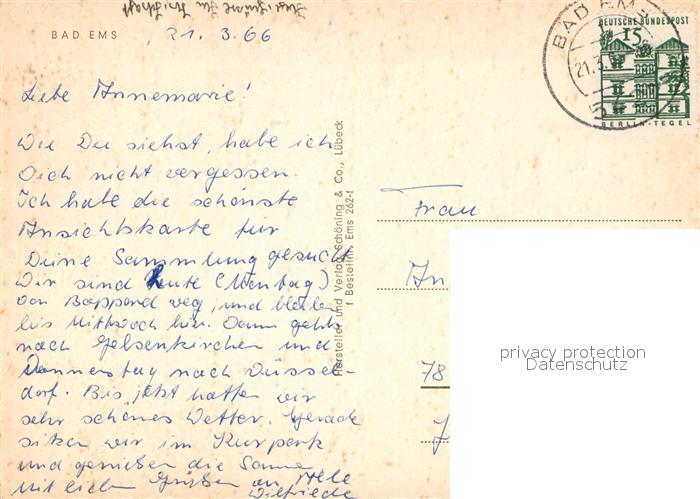 BAD EMS
21. 3. 66
Liebe Annemarie!
Wie Du siehst, habe ich
Dich nicht vergessen.
Ich habe die schönste
Ansichtskarte für
Deine Sammlung gesucht
Wir sind heute (Montag)
von Boppard weg, und bleiben
bis Mittwoch hier. Dann gehts
nach Gelsenkirchen und
Donnerstag nach Düssel-
dorf. Bis jetzt hatten wir
sehr schönes Wetter. Gerade
sitzen wir im Kurpark
und genießen die Sonne
Mit lieben Grüßen an Alle
Wilfriede
Hersteller und Verlag Schöning & Co., Lübeck
Bestellnr. Ems 262-1
BAD EMS
21.3.
DEUTSCHE BUNDESPOST
15
BERLIN-TEGEL
Frau
An
78
privacy protection
Datenschutz